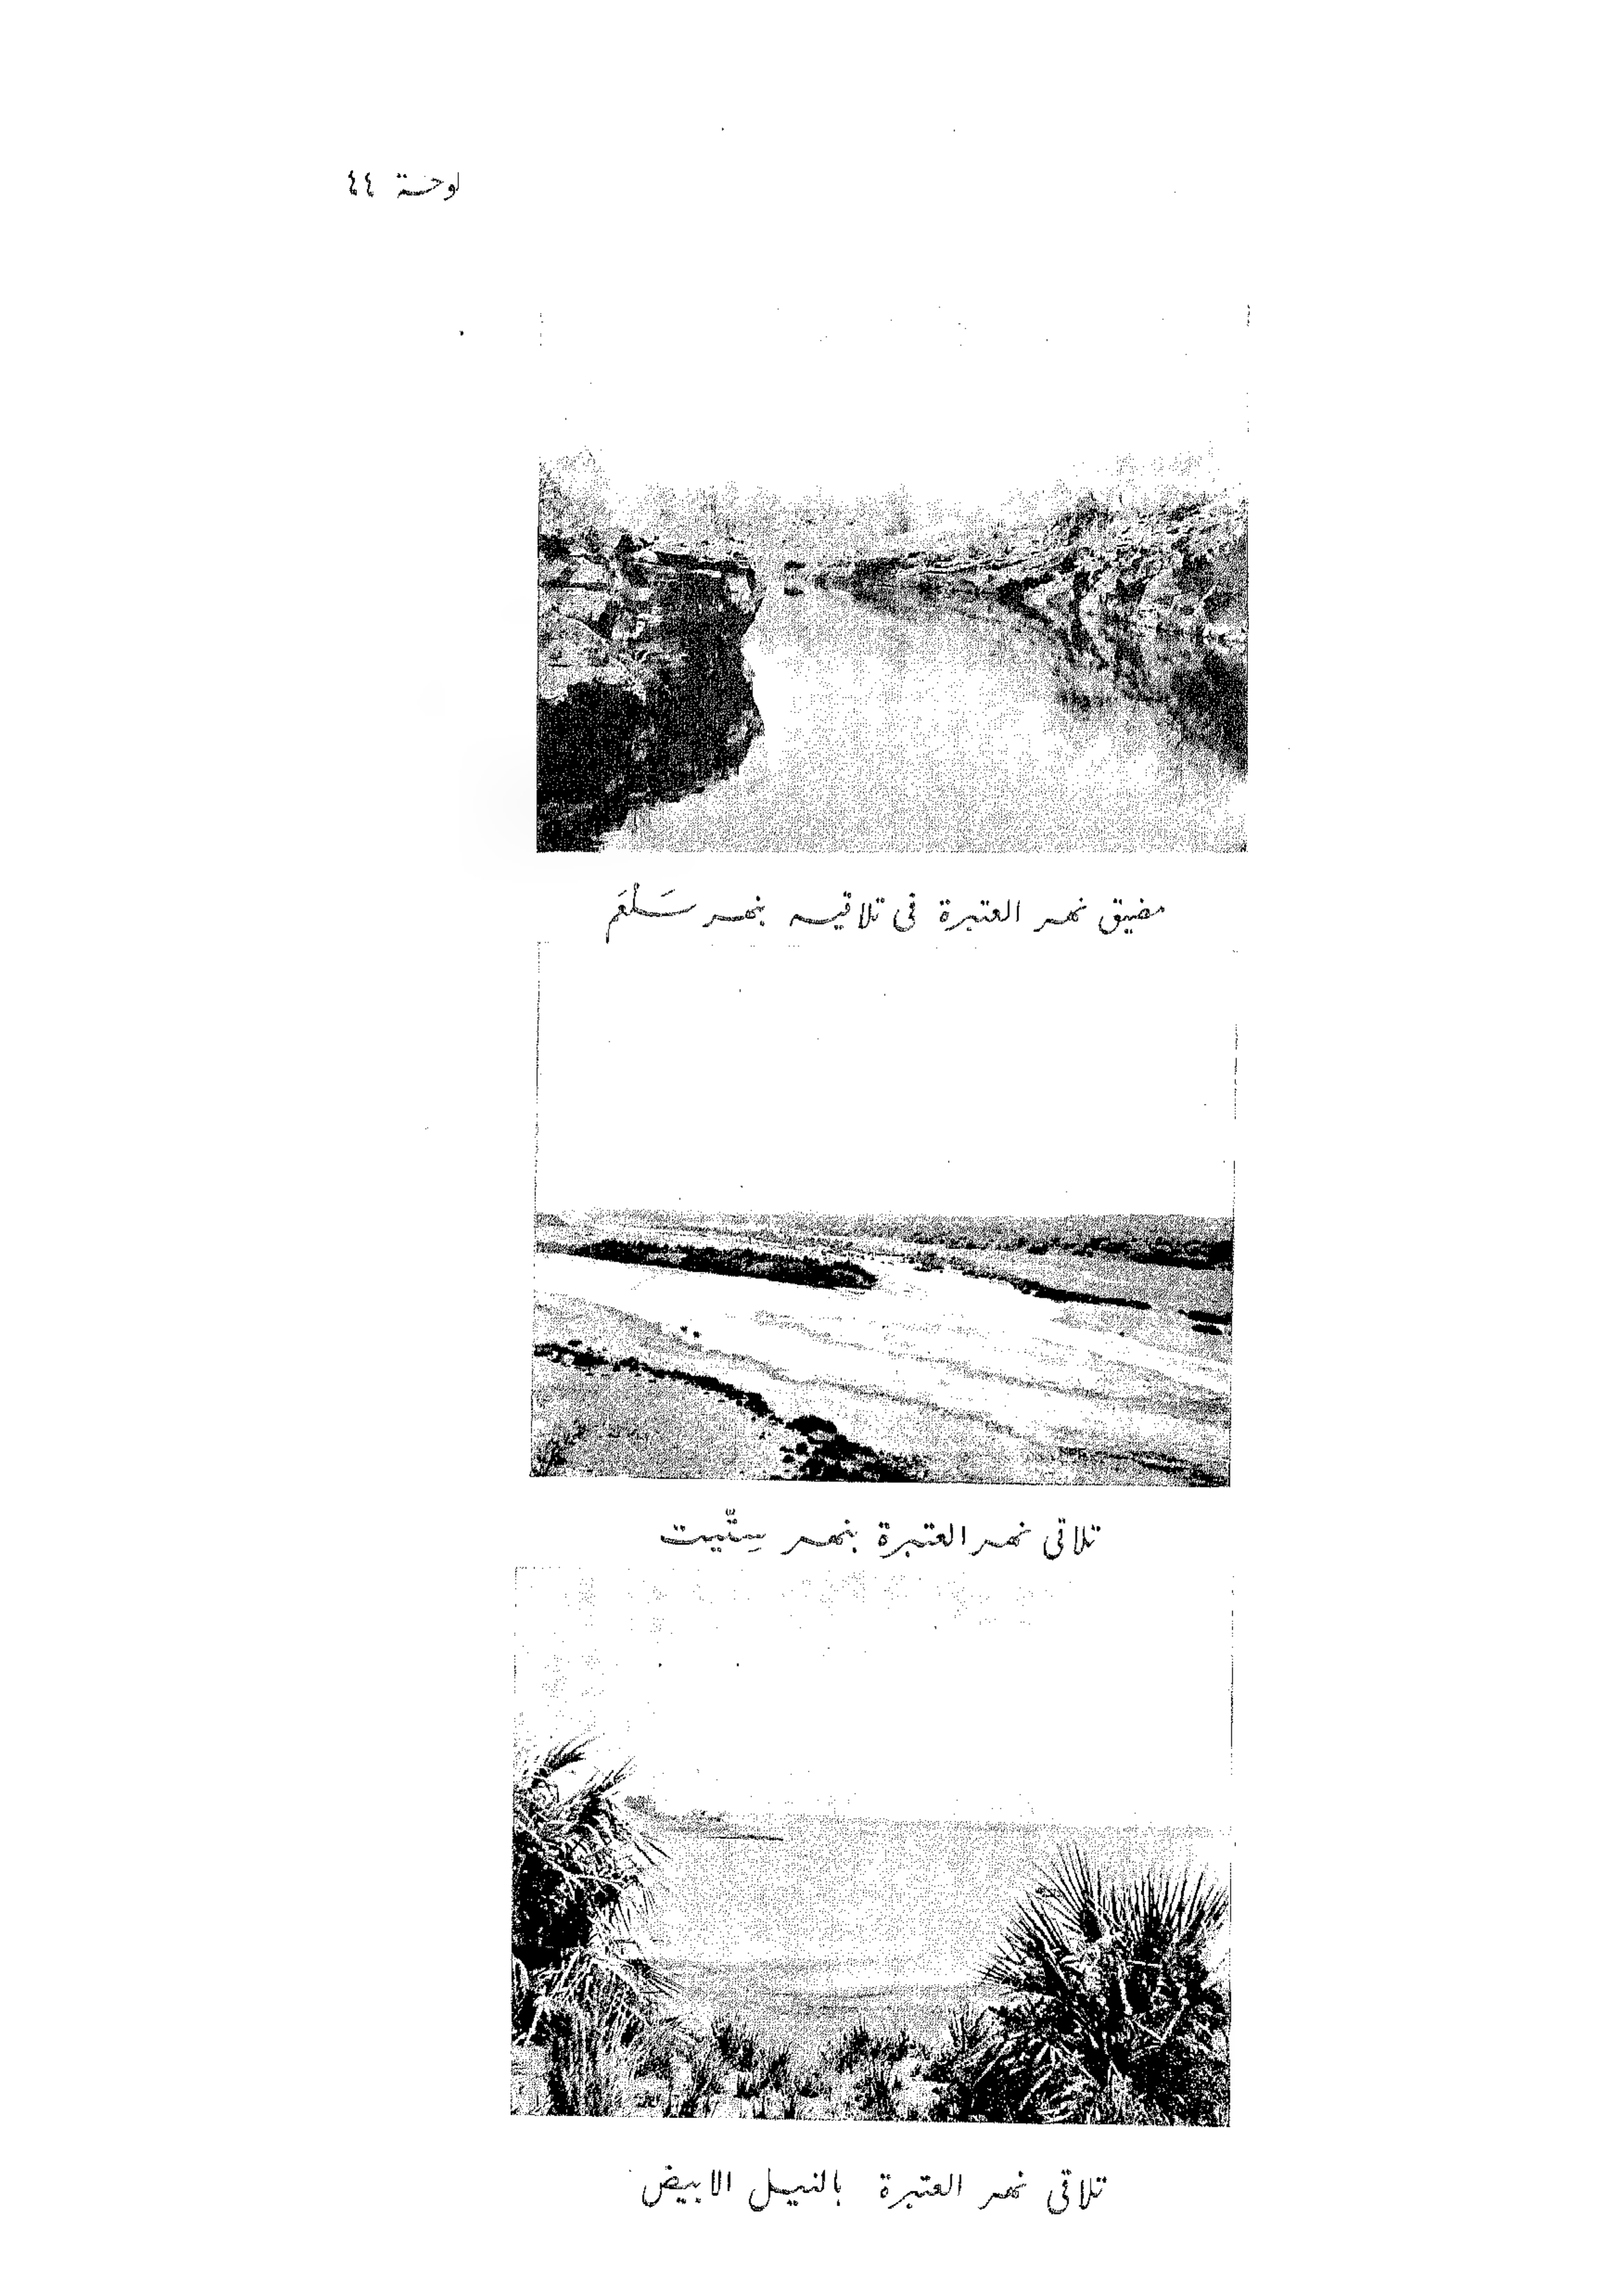 لوحة ٤٤
مضيق نهر العتبرة فى تلاقيه بنهر سَلعَم
تلاقى نهر العتبرة بنهر سِتّيت
تلاقى نهر العتبرة بالنيل الابيض